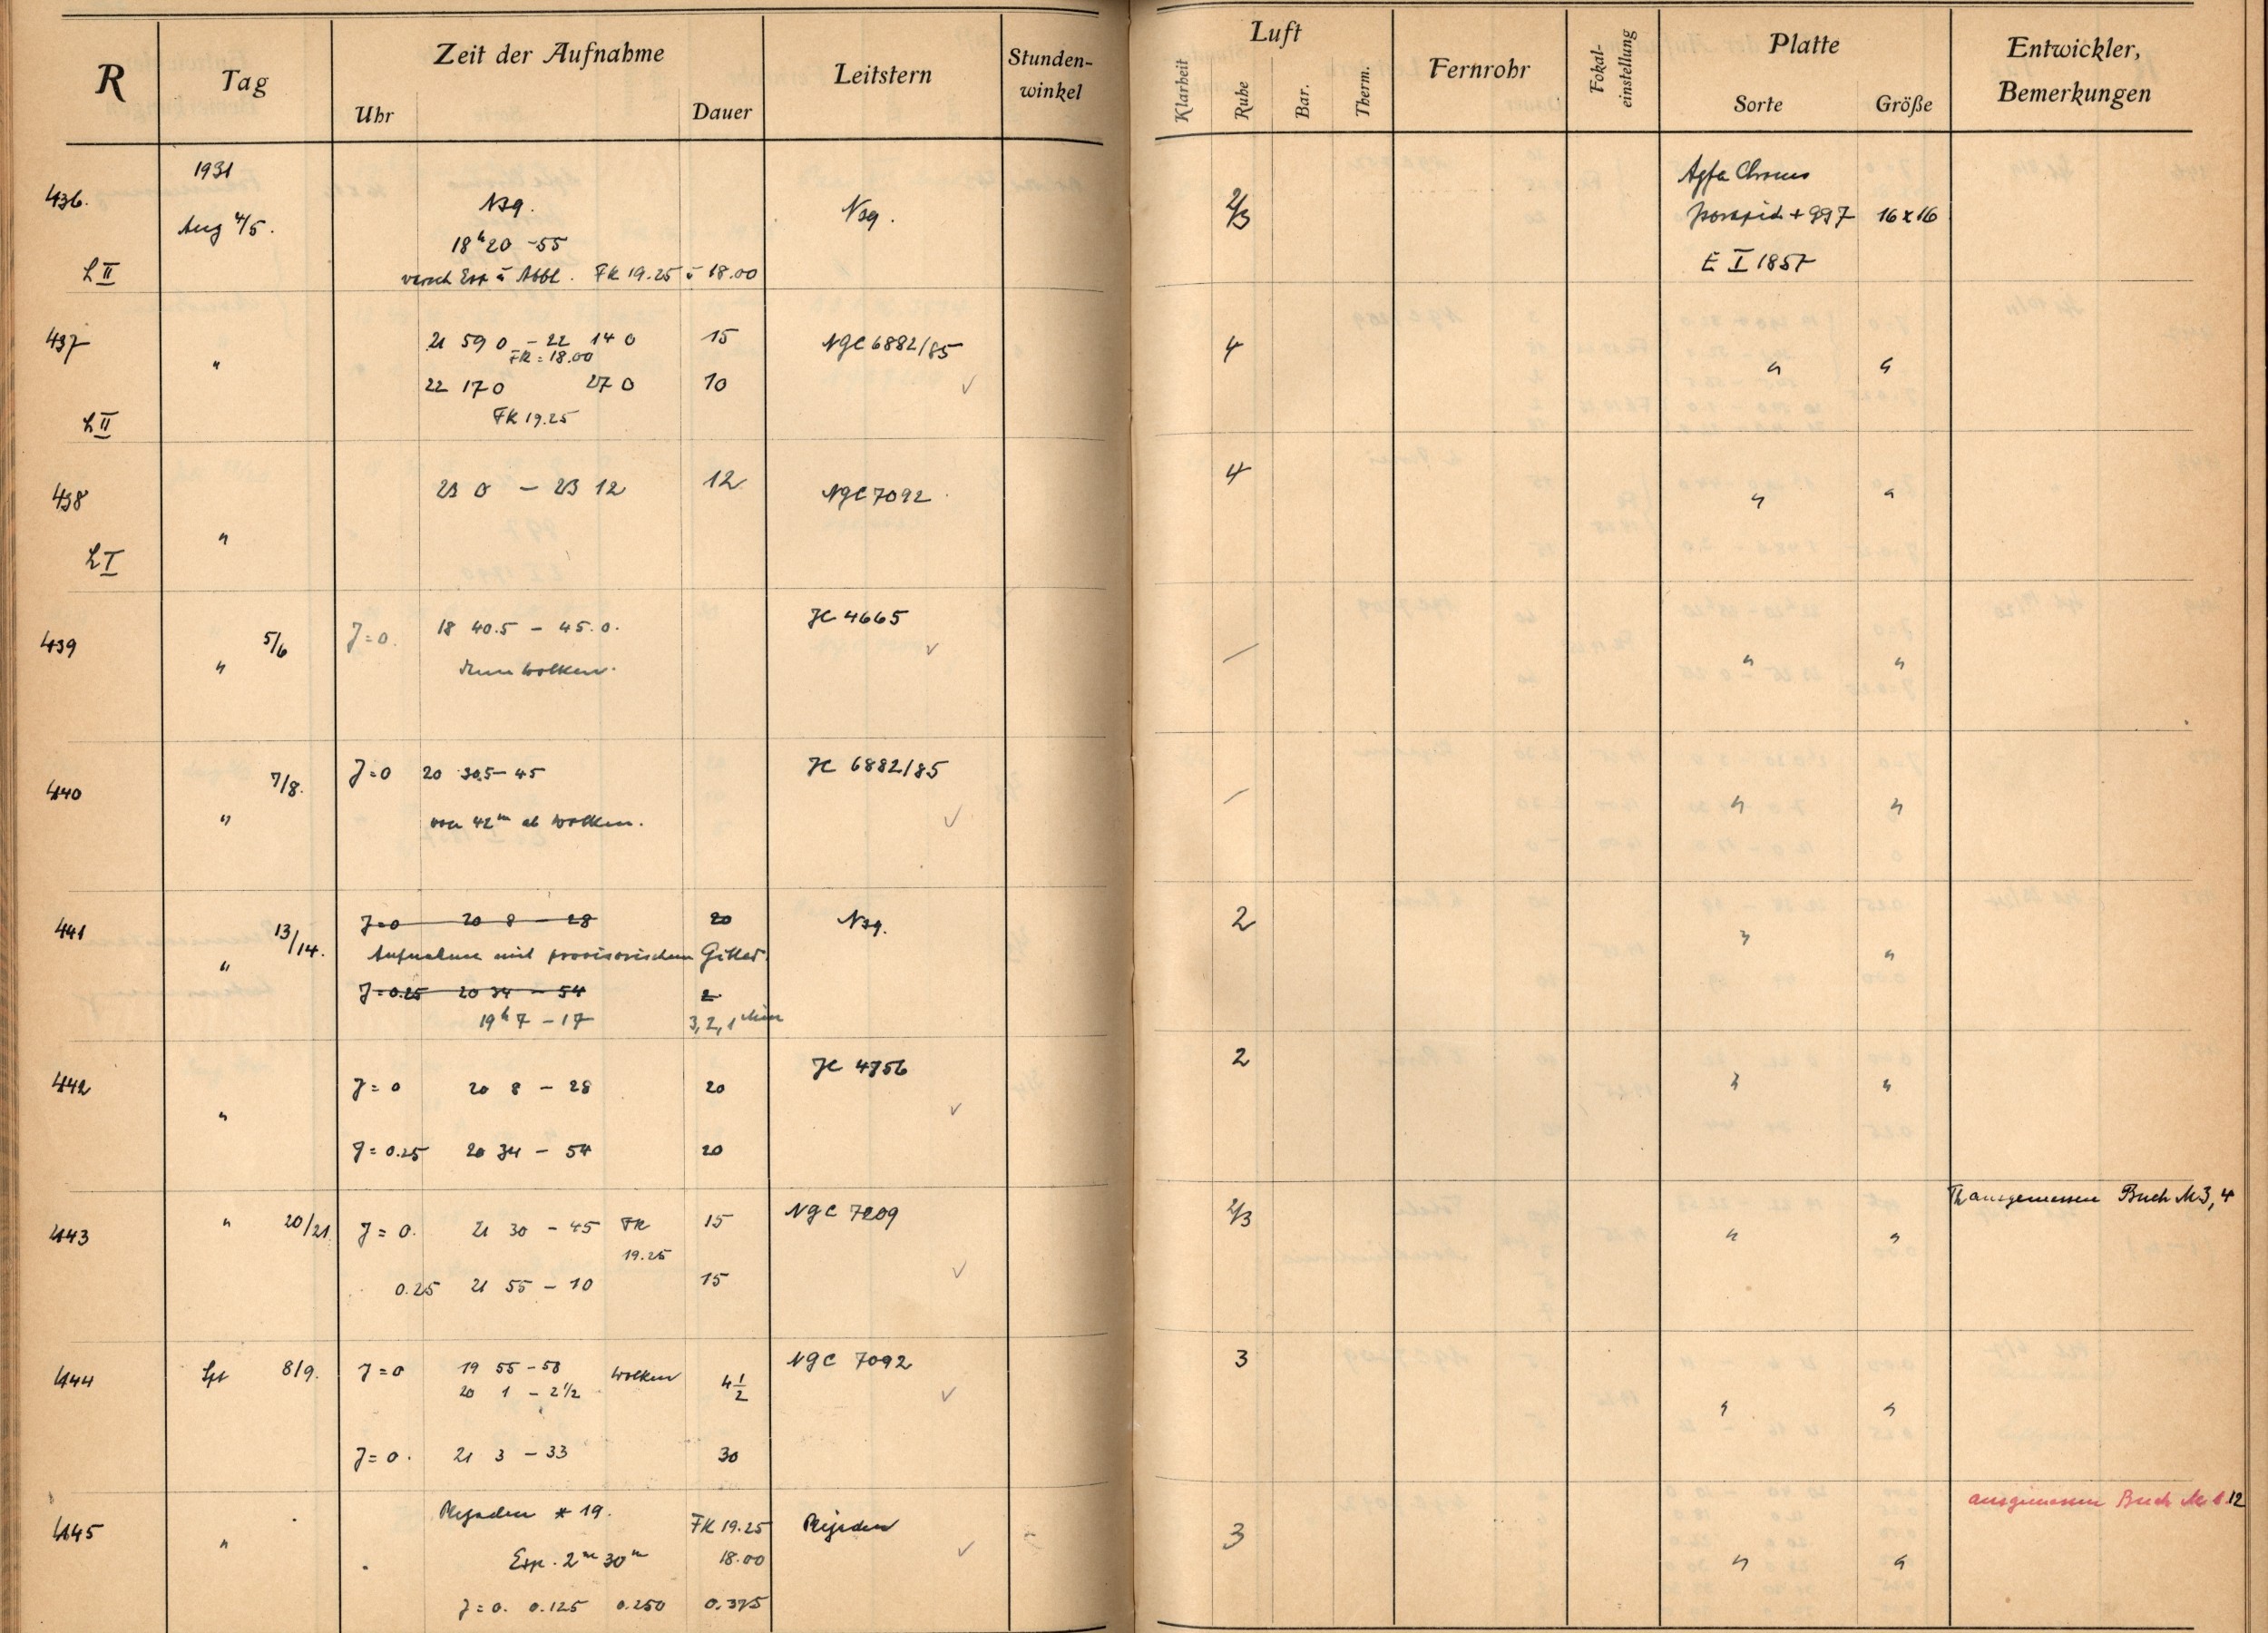 R Tag Zeit der Aufnahme Leitstern Stunden-
winkel
Uhr Dauer
Luft Fernrohr Fokal-
einstellung Platte Entwickler,
Bemerkungen
Klarheit Ruhe Bar. Therm. Sorte Größe
1931
436. Aug 4/5. Nsq. Nsq. 2/3 Agfa Chromo
+ 997 16x16
18h 20 - 55
L II versch Exp u Abbl. FK 19.25 u 18.00 E I 1857
437 " 21 59 0 - 22 14 0 15 NGC 6882/85 4 " "
FK = 18.00
22 17 0 27 0 10 ✓
L II FK 19.25
438 " 23 0 - 23 12 12 NGC 7092 4 " "
L I
439 " 5/6 J=0. 18 40.5 - 45.0. JC 4665 ✓ / " "
dann Wolken.
440 " 7/8. J=0 20 30.5 - 45 JC 6882/85 / " "
von 42m ab Wolken. ✓
441 " 13/14. J=0 20 8 - 28 20 Nsq. 2 " "
Aufnahme mit provisorischem Gitter.
J=0.25 20 34 - 54 2
19h 7 - 17 3, 2, 1 Min
442 " J=0 20 8 - 28 20 JC 4756 ✓ 2 " "
J=0.25 20 34 - 54 20
443 " 20/21 J=0. 21 30 - 45 FK 15 NGC 7209 2/3 " " ausgemessen Buch M 3, 4
19.25
0.25 21 55 - 10 15 ✓
444 Spt 8/9. J=0 19 55 - 58 Wolken 4 1/2 NGC 7092 ✓ 3 " "
20 1 - 2 1/2
J=0. 21 3 - 33 30
445 " Plejaden * 19. FK 19.25 Plejaden ✓ 3 " " ausgemessen Buch 12
Exp. 2m 30m 18.00
J=0. 0.125 0.250 0.375